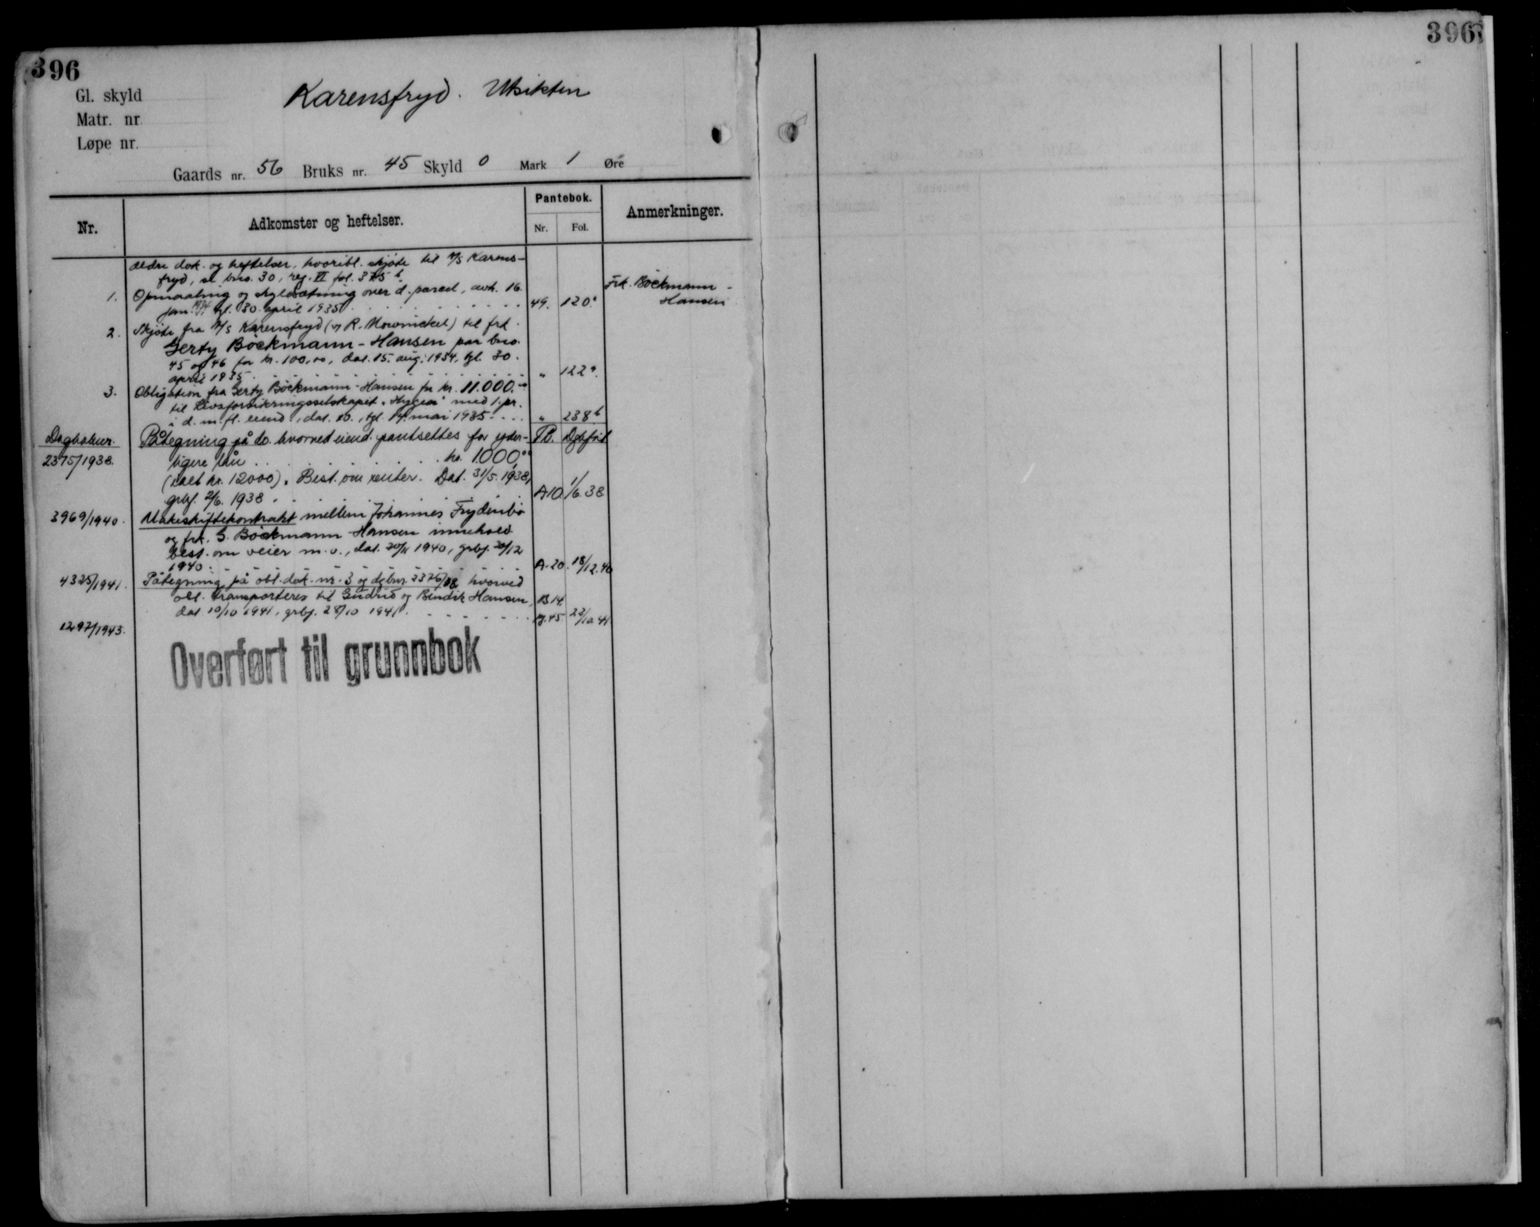 396
396
Gl. skyld
Matr. nr.
Løpe nr.
Karensfryd. Utsikten
Gaards nr. 56 Bruks nr. 45 Skyld 0 Mark 1 Øre
Nr.
Adkomster og heftelser.
Pantebok.
Nr.
Fol.
Anmerkninger.
Ældre dok. og heftelser, hvoribl. skjøte til A/S Karens-
fryd, se bno. 30, reg. VI fol. 375 b.
1. Opmaaling og skyldsætning over d. parcel, avh. 16.
jan. tgl. 30. april 1935 49. 120 a
Frk. Böckmann-
Hansen
2. Skjøte fra A/S Karensfryd (v/ R. Mowinckel) til frk.
Gerty Böckmann-Hansen paa bno.
45 og 46 for kr. 100,00, dat. 15. aug. 1934, tgl. 30.
april 1935 " 122 a.
3. Obligation fra Gerty Böckmann-Hansen for kr. 11.000.-
til Livsforsikringsselskapet "Hygea" med 1. pr.
i d. m. fl. eiend., dat. 10., tgl. 14. mai 1935 " 238 b
Dagboknr. Påtegning på do. hvorved eiend. pantsettes for yder- PB. Dgbført
2375/1938. ligere lån kr. 1000,00
(ialt kr. 12000). Best. om renter. Dat. 31/5 1938,
grbf. 2/6. 1938 A10 1/6 38
3969/1940. Makeskiftekontrakt mellem Johannes Frydenbø
og frk. G. Böckmann Hansen innehold.
best. om veier m.v., dat. 20/11 1940, grbf. 20/12
1940 A.20. 18/12.40
4325/1941. Påtegning på obl. dok. nr. 3 og dgbnr. 2375/38 hvorved
obl. transporteres til Gudrid og Bendix Hansen, B14
dat. 10/10 1941, grbf. 28/10 1941 22/10.41
1297/1943.
Overført til grunnbok